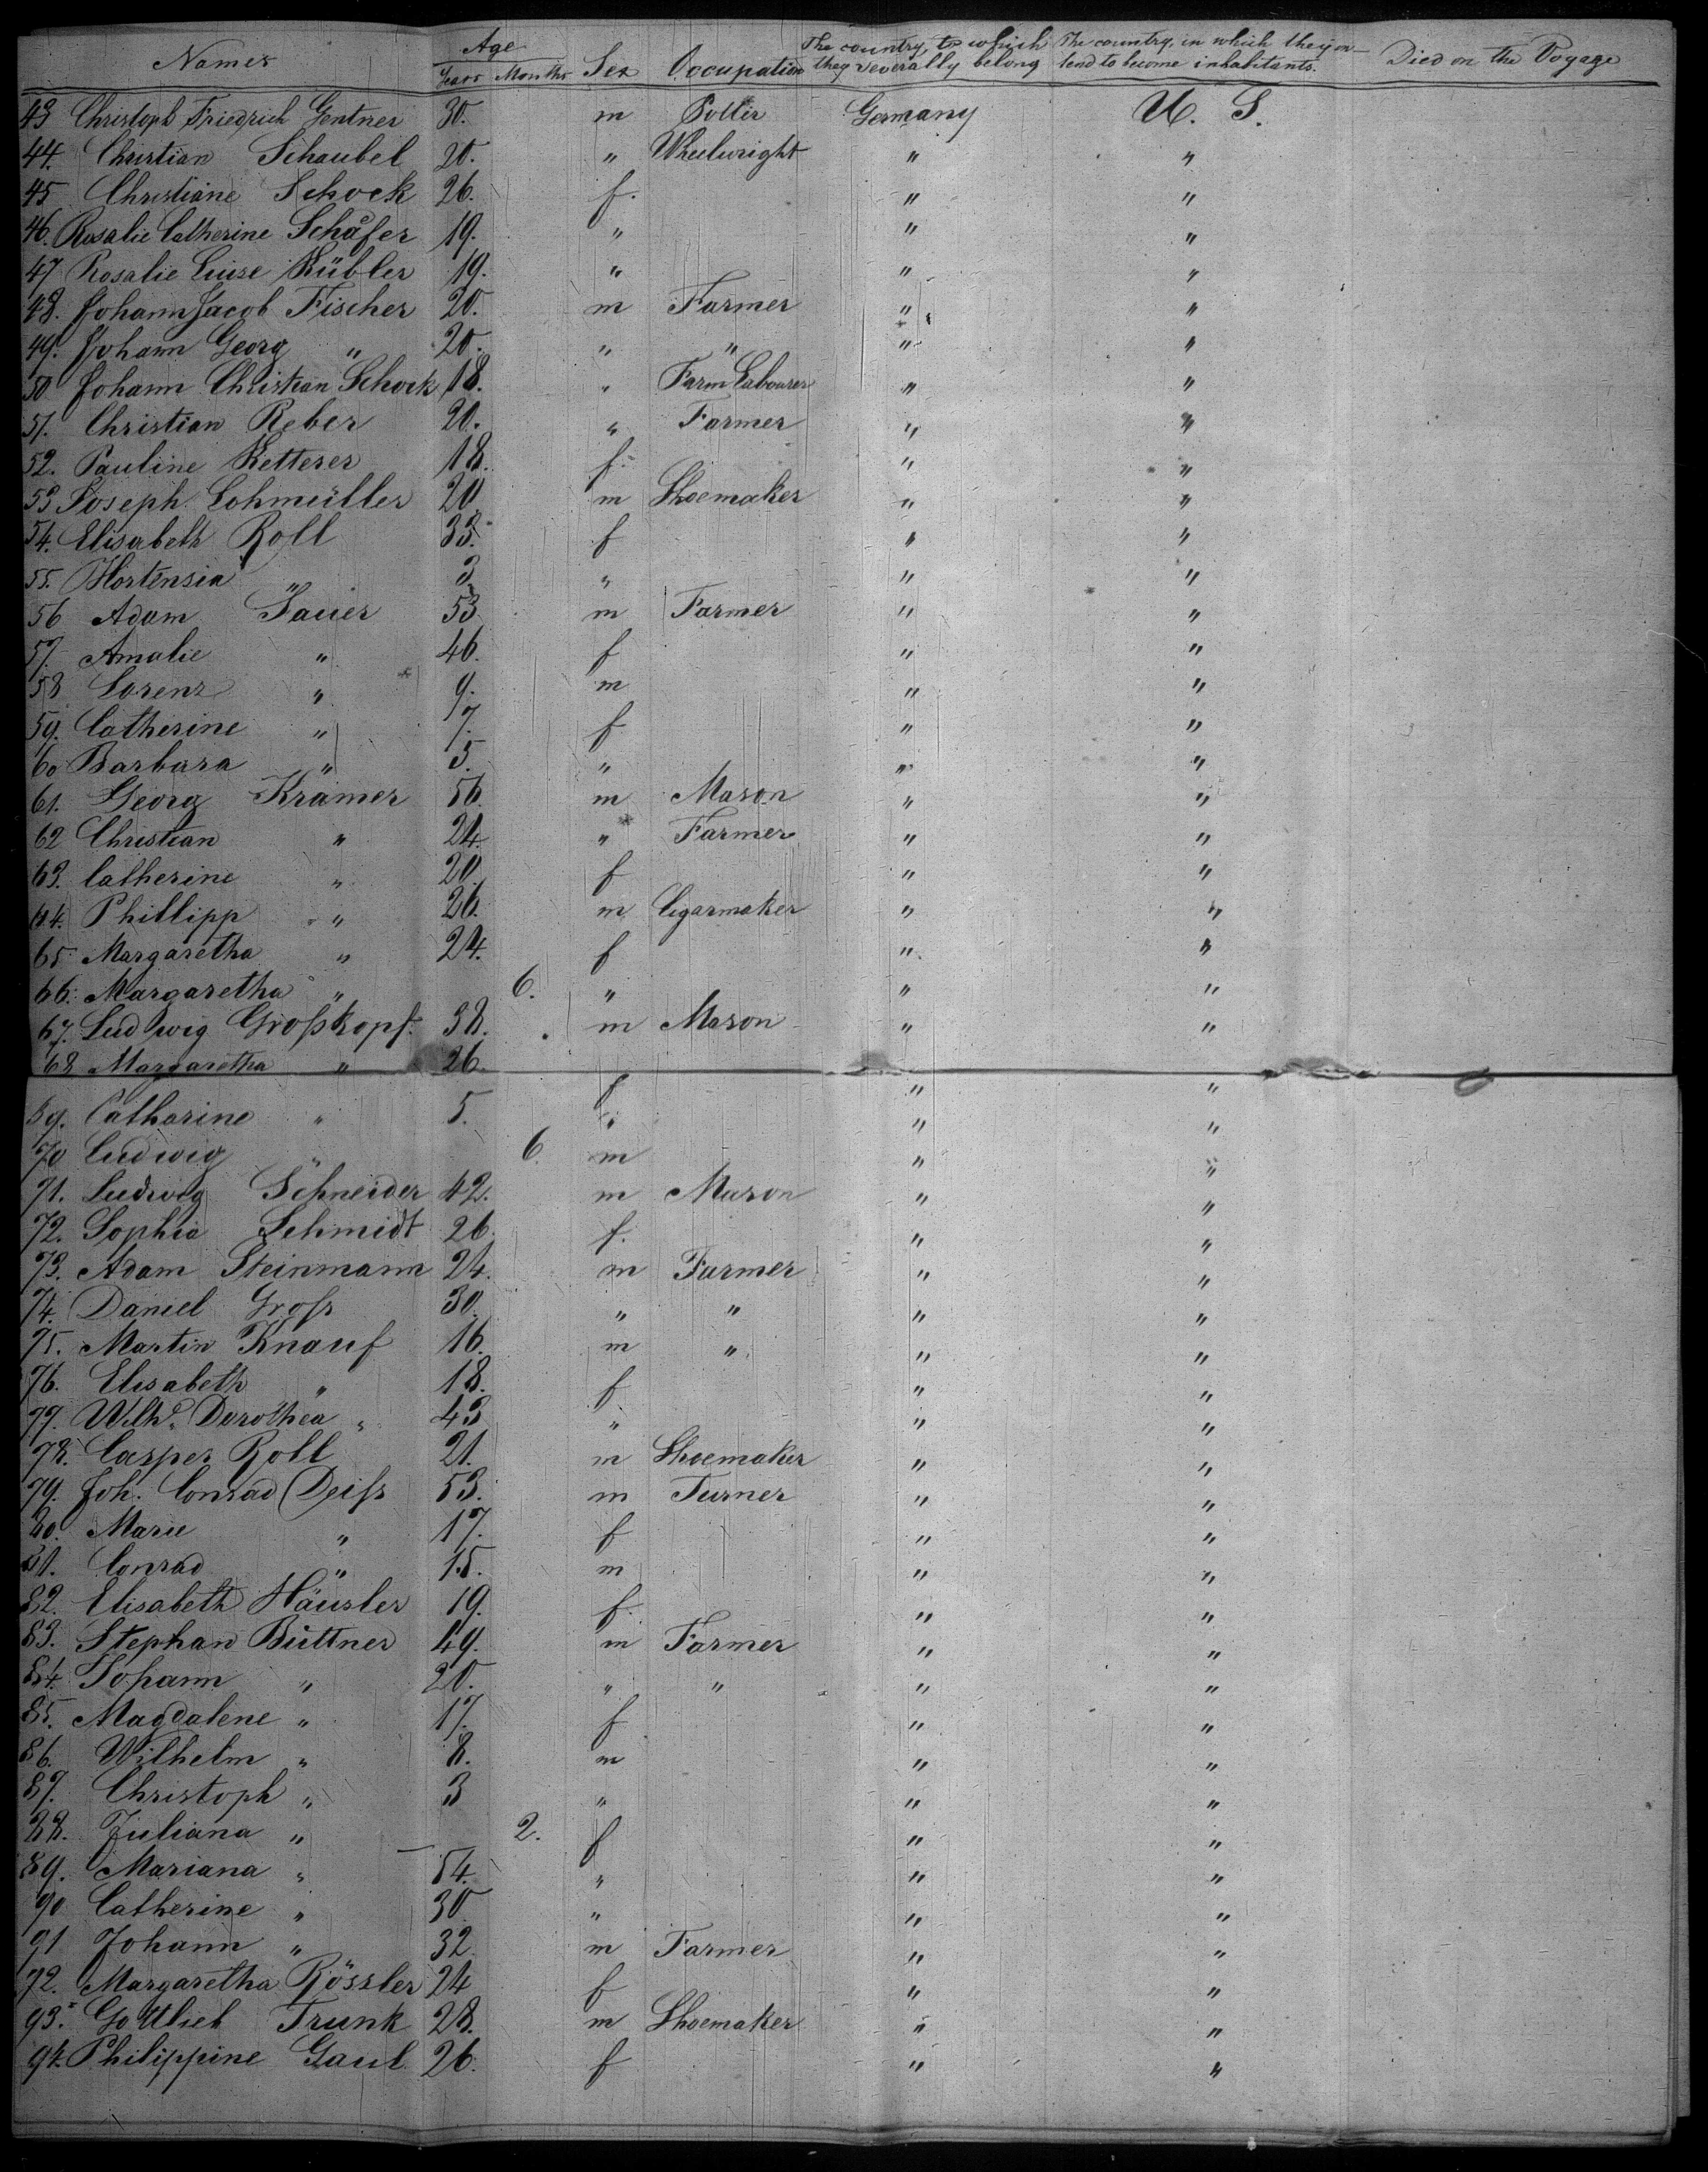 Names Age Sex Occupation The country, to which The country, in which they in- Died on the Voyage
Years Months they severally belong tend to become inhabitants.
43 Christoph Friedrich Gentner 30. m Potter Germany U. S.
44. Christian Schaubel 20. " Wheelwright " "
45 Christiane Schock 26. f. " "
46. Rosalie Catherine Schäfer 19. " " "
47 Rosalie Luise Kübler 19. " " "
48. Johann Jacob Fischer 20. m Farmer " "
49. Johann Georg " 20. " " " "
50 Johann Christian Schock 18. " Farm Labourer " "
51. Christian Reber 20. " Farmer " "
52. Pauline Ketterer 18. f. " "
53 Joseph Lohmüller 20 m Shoemaker " "
54. Elisabeth Roll 33. f " "
55. Hortensia " 3 " " "
56 Adam Sauer 53 m Farmer " "
57. Amalie " 46. f " "
58 Lorenz " 9. m " "
59. Catherine " 7. f " "
60 Barbara " 5. " " "
61. Georg Krämer 56. m Mason " "
62 Christian " 24. " Farmer " "
63. Catherine " 20 f " "
64. Phillipp " 26. m Cigarmaker " "
65 Margaretha " 24. f " "
66. Margaretha " 6. " " "
67. Ludwig Großkopf. 38. m Mason " "
68 Margaretha " 26. f " "
69. Catharine " 5. " " "
70 Ludwig " 6 m " "
71. Ludwig Schneider 42. m Mason " "
72. Sophia Schmidt 26. f. " "
73. Adam Steinmann 24. m Farmer " "
74. Daniel Groß 30. " " " "
75. Martin Knauf 16. m " " "
76. Elisabeth " 18. f " "
77. Wilhe. Dorothea " 43 " " "
78. Casper Roll 21. m Shoemaker " "
79. Joh. Conrad Deiß 53. m Turner " "
80. Marie " 17. f " "
81. Conrad " 15. m " "
82. Elisabeth Häusler 19. f. " "
83. Stephan Büttner 49. m Farmer " "
84. Johann " 20. " " " "
85. Magdalene " 17. f " "
86. Wilhelm " 8. m " "
87. Christoph " 3 " " "
88. Juliana " 2. f " "
89. Mariana " 54. " " "
90 Catherine " 30 " " "
91 Johann " 32 m Farmer " "
92. Margaretha Rössler 24 f " "
93. Gottlieb Trunk 28. m Shoemaker " "
94. Philippine Gaul 26. f " "